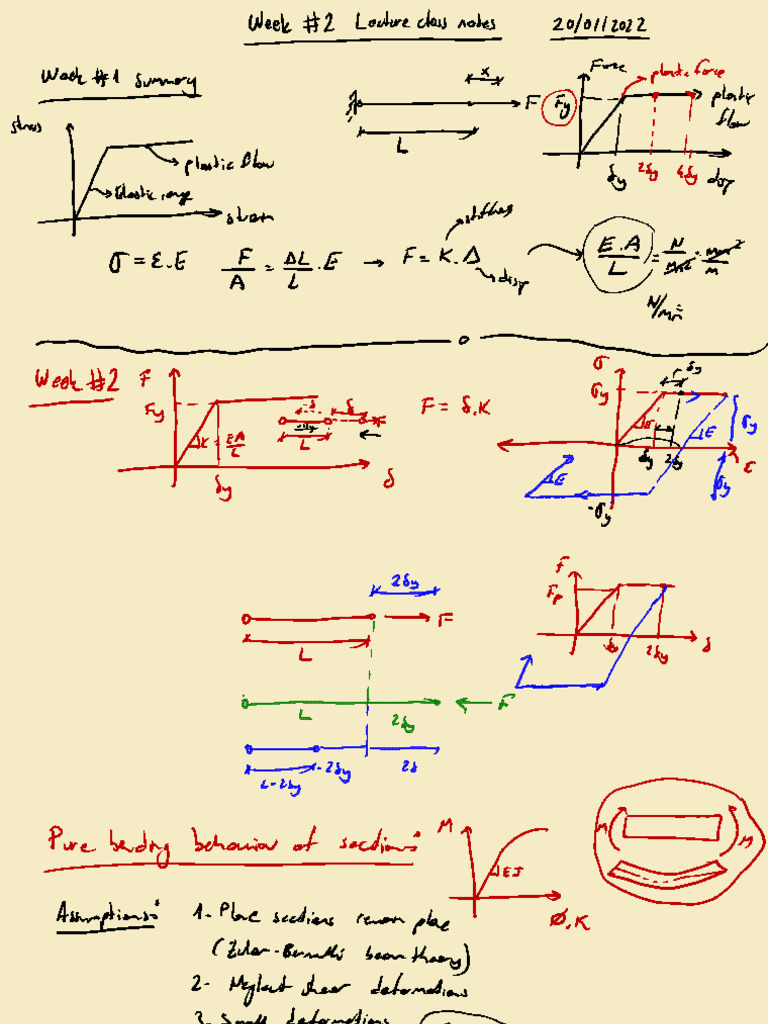 Week #2 Lecture class notes 20/01/2022
Week #1 Summary
stress
plastic flow
Elastic range
strain
x
F
L
Force
plastic force
Fy
plastic flow
δy 2δy 4δy disp
σ = ε.E F/A = ΔL/L . E → F = K.Δ
stiffness
disp
E.A/L = N/mm² . mm²/m
N/mm
Week #2
F
Fy
K = EA/L
δy
δ
δ δ
L
F = δ.K
σ
σy
δy
E
E
δy 2δy
ε
σy
σy
E
-σy
2δy
F
L
F
Fp
δy 2δy
δ
L
2δy
F
L-2δy
-2δy
2δ
Pure bending behavior of sections:
M
EI
Ø, K
M
M
Assumptions:
1- Plane sections remain plane
(Euler-Bernoulli beam theory)
2- Neglect shear deformations
3. Small deformations